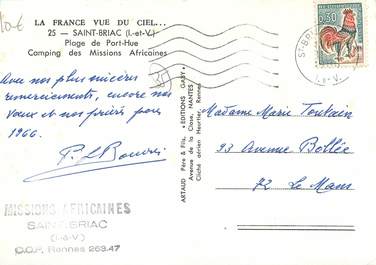 LA FRANCE VUE DU CIEL...
25 — SAINT-BRIAC (I.-et-V.)
Plage de Port-Hue
Camping des Missions Africaines
Avec nos plus sincères
remerciements, encore nos
voeux et nos prières pour
1966.
MISSIONS AFRICAINES
SAINT-BRIAC
(I.-&-V.)
C.C.P. Rennes 263.47
ARTAUD Père & Fils, « EDITIONS GABY »
Avenue de la Close, NANTES
Cliché aérien Heurtier, Rennes
0,30
St-BRI
I.-&-V.
Madame Marie Toutain
93 Avenue Bollée
72 Le Mans